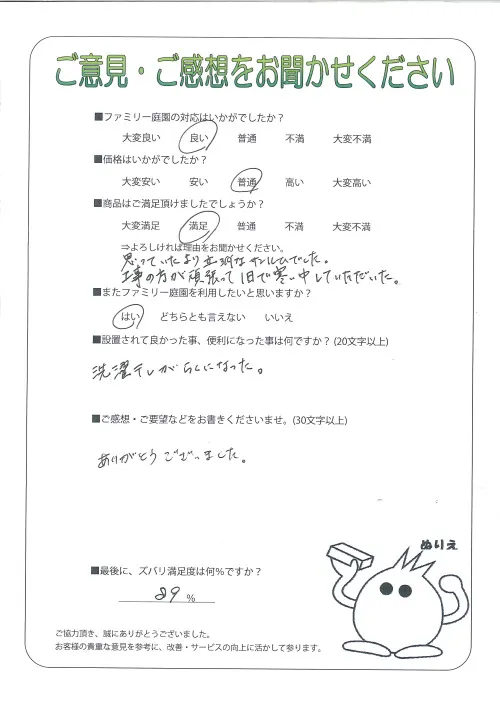 ご意見・ご感想をお聞かせください
■ファミリー庭園の対応はいかがでしたか？
大変良い 良い 普通 不満 大変不満
■価格はいかがでしたか？
大変安い 安い 普通 高い 大変高い
■商品はご満足頂けましたでしょうか？
大変満足 満足 普通 不満 大変不満
⇒よろしければ理由をお聞かせください。
思っていたより立派なサンルームでした。
工事の方が頑張って1日で寒い中していただいた。
■またファミリー庭園を利用したいと思いますか？
はい どちらとも言えない いいえ
■設置されて良かった事、便利になった事は何ですか？(20文字以上)
洗濯干しがらくになった。
■ご感想・ご要望などをお書きくださいませ。(30文字以上)
ありがとうございました。
ぬりえ
■最後に、ズバリ満足度は何％ですか？
89 %
ご協力頂き、誠にありがとうございました。
お客様の貴重な意見を参考に、改善・サービスの向上に活かして参ります。